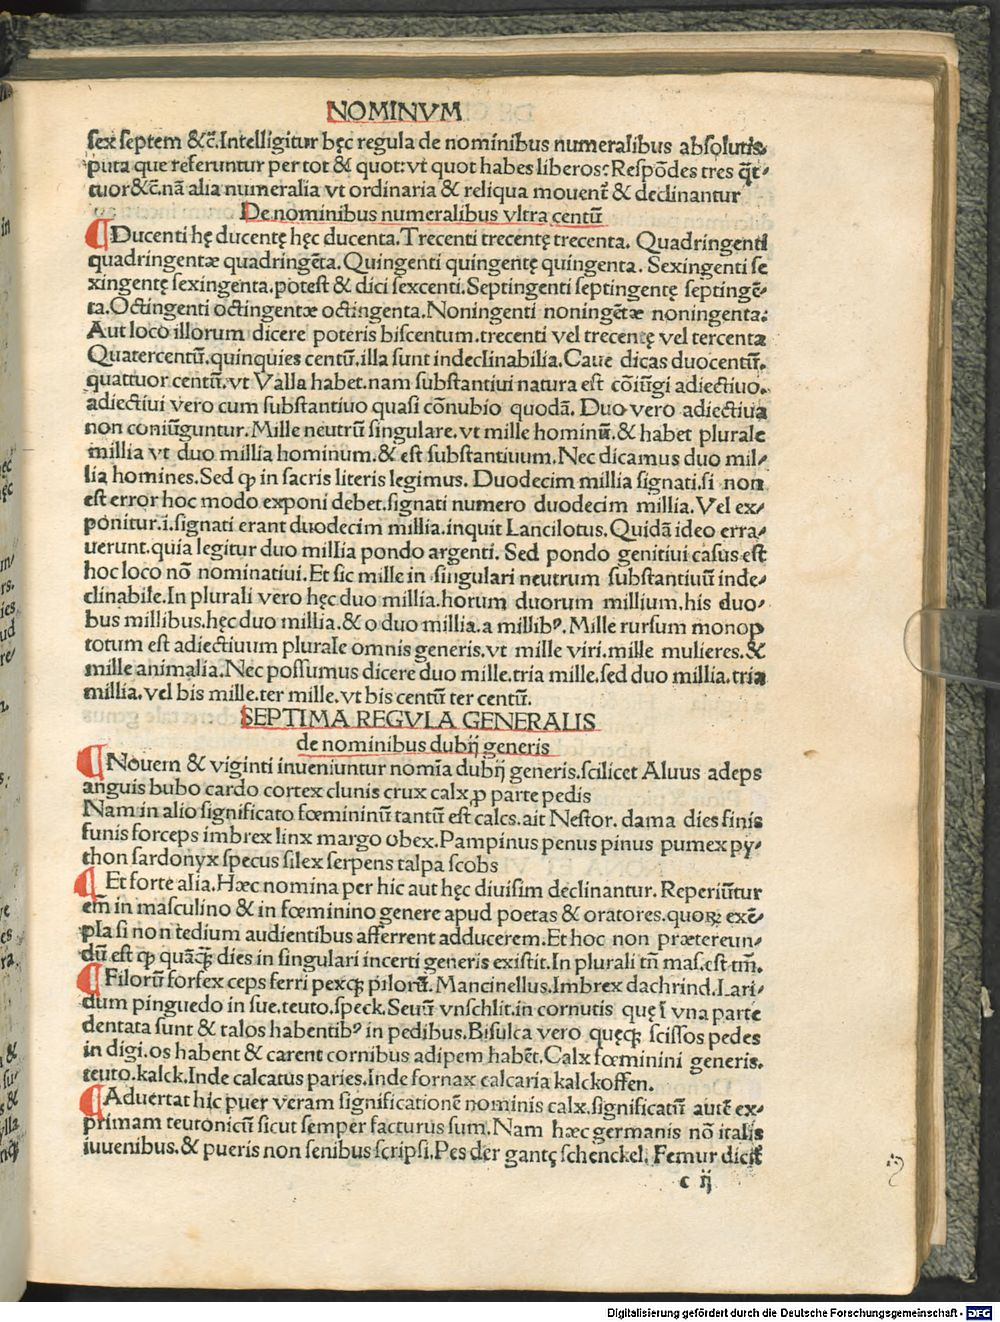 NOMINVM
sex septem &c̄. Intelligitur hęc regula de nominibus numeralibus absolutis.
puta que referuntur per tot & quot: vt quot habes liberos: Respōdes tres q̄t-
tuor &c̄. nā alia numeralia vt ordinaria & reliqua mouent̄ & declinantur
De nominibus numeralibus vltra centū
¶ Ducenti hę ducentę hęc ducenta. Trecenti trecentę trecenta. Quadringenti
quadringentæ quadringēta. Quingenti quingentę quingenta. Sexingenti se
xingentę sexingenta. potest & dici sexcenti. Septingenti septingentę septingē-
ta. Octingenti octingentæ octingenta. Noningenti noningētæ noningenta:
Aut loco illorum dicere poteris biscentum. trecenti vel trecentę vel tercenta
Quatercentū. quinquies centū. illa sunt indeclinabilia. Caue dicas duocentū.
quattuor centū. vt Valla habet. nam substantiui natura est cōiūgi adiectiuo.
adiectiui vero cum substantiuo quasi cōnubio quodā. Duo vero adiectiua
non coniūguntur. Mille neutrū singulare. vt mille hominū. & habet plurale
millia vt duo millia hominum. & est substantiuum. Nec dicamus duo mil-
lia homines. Sed ꝙ in sacris literis legimus. Duodecim millia signati. si non
est error hoc modo exponi debet. signati numero duodecim millia. Vel ex-
ponitur. i. signati erant duodecim millia. inquit Lancilotus. Quidā ideo erra-
uerunt. quia legitur duo millia pondo argenti. Sed pondo genitiui casus est
hoc loco nō nominatiui. Et sic mille in singulari neutrum substantiuū inde-
clinabile. In plurali vero hęc duo millia. horum duorum millium. his duo-
bus millibus. hęc duo millia. & o duo millia. a millibꝰ. Mille rursum monop
totum est adiectiuum plurale omnis generis. vt mille viri. mille mulieres. &
mille animalia. Nec possumus dicere duo mille. tria mille. sed duo millia. tria
millia. vel bis mille. ter mille. vt bis centū ter centū.
SEPTIMA REGVLA GENERALIS
de nominibus dubij generis
¶ Nouem & viginti inueniuntur nomīa dubij generis. scilicet Aluus adeps
anguis bubo cardo cortex clunis crux calx ꝓ parte pedis
Nam in alio significato fœmininū tantū est calcs. ait Nestor. dama dies finis
funis forceps imbrex linx margo obex. Pampinus penus pinus pumex py-
thon sardonyx specus silex serpens talpa scobs
¶ Et forte alia. Hæc nomina per hic aut hęc diuisim declinantur. Reperiūtur
em̄ in masculino & in fœminino genere apud poetas & oratores. quoꝝ exē-
pla si non tedium audientibus afferrent adducerem. Et hoc non prætereun-
dū est ꝙ quāꝗ̄ dies in singulari incerti generis existit. In plurali tn̄ mas. est tm̄.
¶ Filorū forfex ceps ferri pexqꝫ pilorū. Mancinellus. Imbrex dachrind. Lari-
dum pinguedo in sue. teuto. speck. Seuū vnschlit. in cornutis quę ī vna parte
dentata sunt & talos habentibꝰ in pedibus. Bisulca vero quęqꝫ scissos pedes
in digi. os habent & carent cornibus adipem habēt. Calx fœminini generis.
teuto. kalck. Inde calcatus paries. Inde fornax calcaria kalckoffen.
¶ Aduertat hic puer veram significationē nominis calx. significatū autē ex-
primam teutonicū sicut semper facturus sum. Nam hæc germanis nō italis
iuuenibus. & pueris non senibus scripsi. Pes der gantz schenckel. Femur dicit̄
c ij
Digitalisierung gefördert durch die Deutsche Forschungsgemeinschaft - DFG